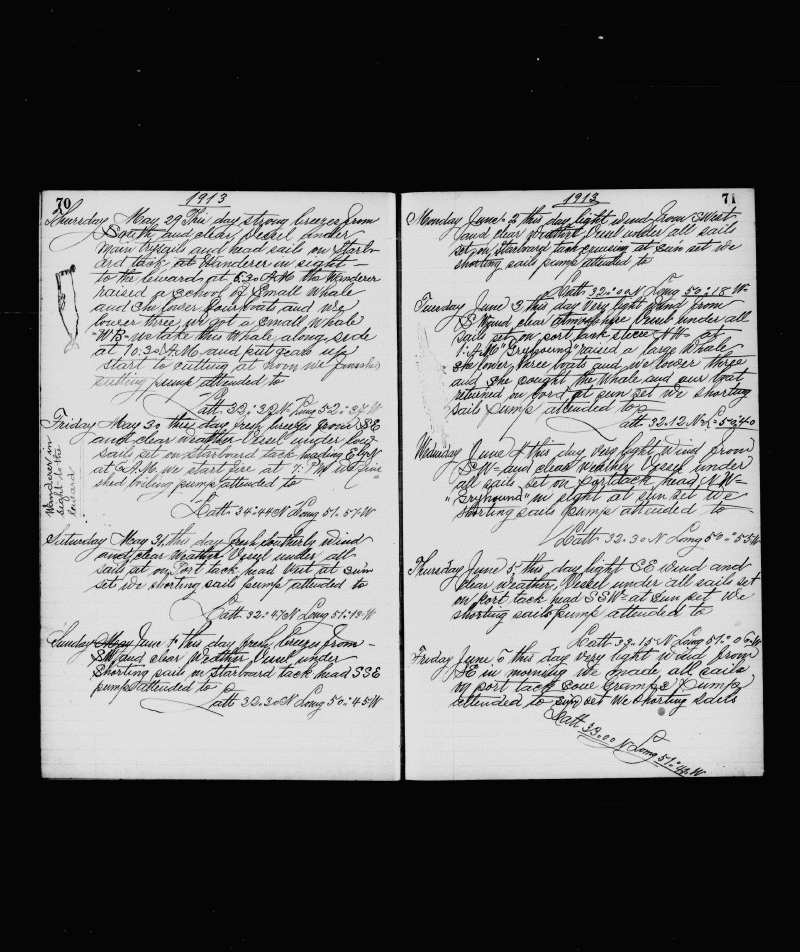 70
1913
Thursday May 29 This day strong breezes from
South and clear, Vessel under
main trysail and head sails on Starb-
ard tack at Wanderer in sight -
to the leward, at 6:30 A.M. the Wanderer
raised a school of Small Whale
and she lower four boats and we
lower three, we got a small Whale
"WB" we take this Whale along side
at 10:30 A.M. and put gears up
start to cutting at noon we finished
cutting pump attended to
Latt 33:32 N Long 52:27 W
Friday May 30 this day fresh breeze from SE
and clear weather Vessel under low
sails set on Starboard tack heading E by N
at A.M. we start fire at 7: PM we fini-
shed boiling pump attended to
Wanderer in
sight to the
leward
Latt 34:44 N Long 51:57 W
Saturday May 31, this day fresh southerly wind
and clear weather Vessel under all
sails at on Port tack head West at sun
set we shorting sails pump attended to
Latt 32:47 N Long 51:13 W
Sunday May June 1 this day fresh breezes from -
SW and clear Weather Vessel under
shorting sails on Starboard tack head SSE
pump attended to
Latt 32:30 N Long 50:45 W
1913
71
Monday June 2 this day light wind from SWest
and clear Weather Vessel under all sails
set on Starboard tack cruising at sun set we
shorting sails pump attended to
Latt 32:00 N Long 50:18 W
Tuesday June 3 this day very light wind from
S W and clear atmosphere Vessel under all
sails set on port tack steer NW at
1: A.M "Greyhound" raised a large Whale
she lower three boats and we lower three
and she caught the Whale and our boat
returned on bord at sun set we shorting
sails pump attended to
Latt 32.12 N L 50:40
Wednesday June 4 this day very light Wind from
S W and clear weather Vessel under
all sails set on Port tack head NW
"Greyhound" in sight at sun set we
shorting sails pump attended to
Latt 32.30 N Long 50:55 W
Thursday June 5 this day light SE wind and
clear weather, Vessel under all sails set
on port tack head SSW at sun set We
shorting sails pump attended to
Latt 33.15 N Long 51:06 W
Friday June 6 this day very light wind from
SE in morning we made all sails
on port tack some Grampus Pump
attended to sun set We shorting sails
Latt 33.00 N Long 51:42 W